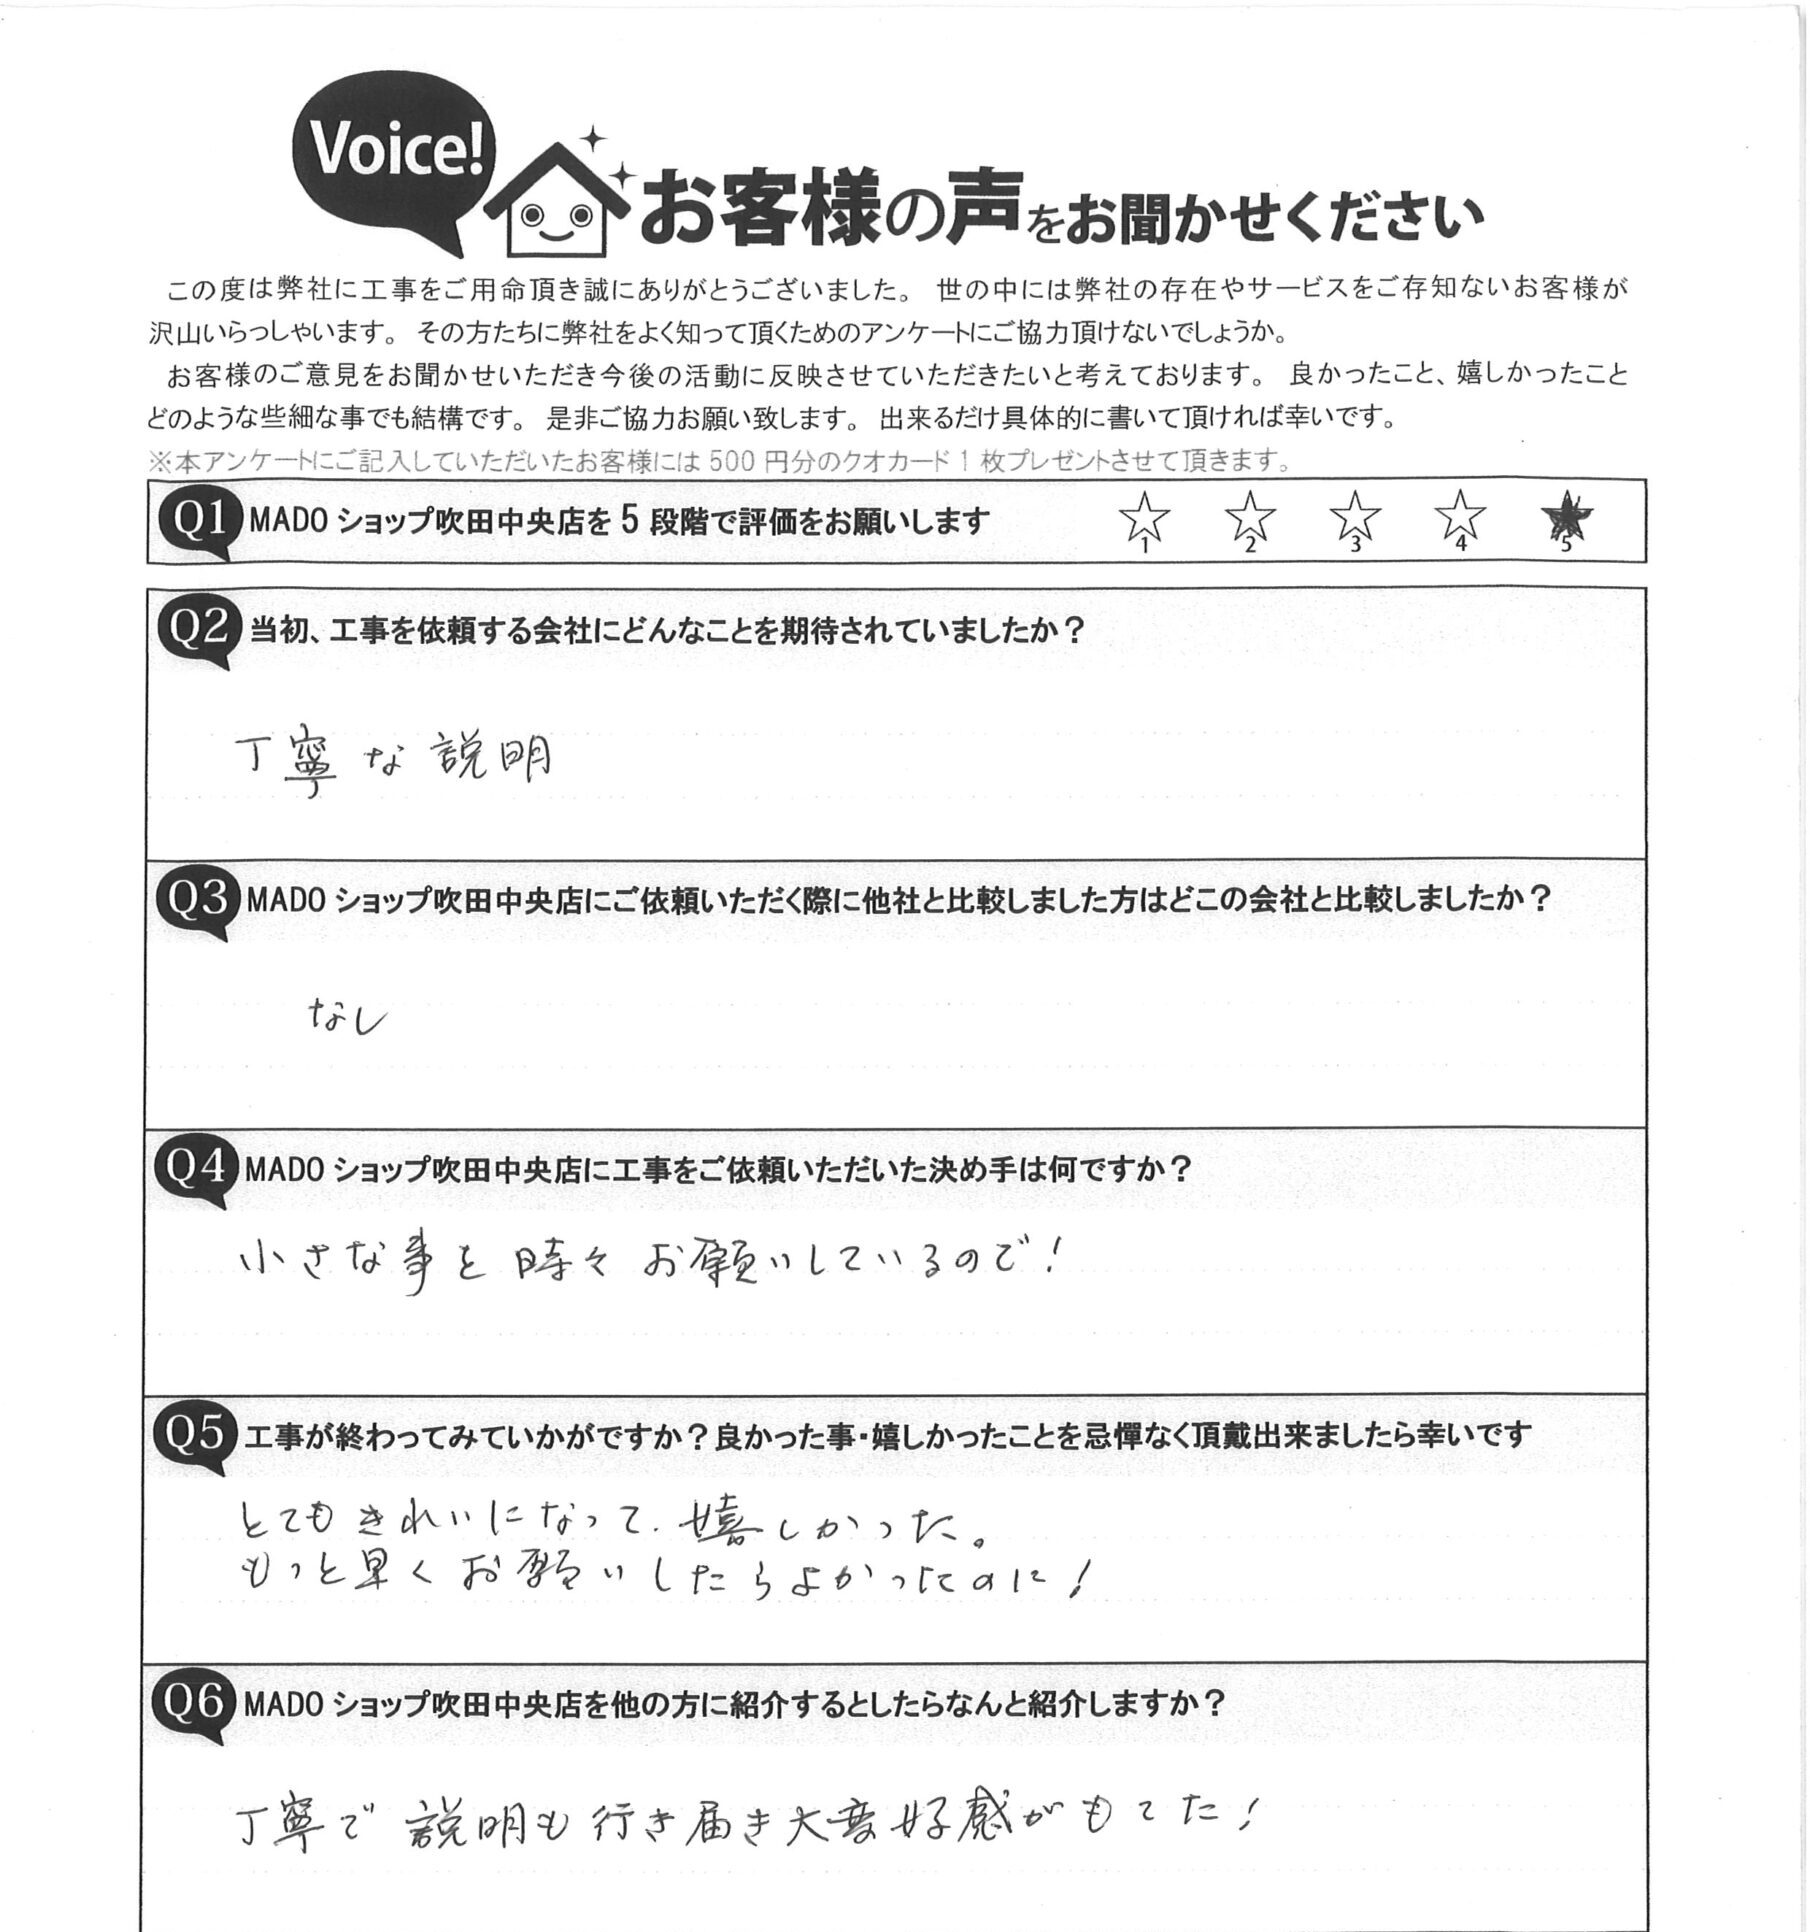 Voice!
お客様の声をお聞かせください
この度は弊社に工事をご用命頂き誠にありがとうございました。 世の中には弊社の存在やサービスをご存知ないお客様が
沢山いらっしゃいます。 その方たちに弊社をよく知って頂くためのアンケートにご協力頂けないでしょうか。
お客様のご意見をお聞かせいただき今後の活動に反映させていただきたいと考えております。 良かったこと、嬉しかったこと
どのような些細な事でも結構です。 是非ご協力お願い致します。 出来るだけ具体的に書いて頂ければ幸いです。
※本アンケートにご記入していただいたお客様には 500 円分のクオカード 1 枚プレゼントさせて頂きます。
Q1 MADO ショップ吹田中央店を 5 段階で評価をお願いします ☆1 ☆2 ☆3 ☆4 ★5
Q2 当初、工事を依頼する会社にどんなことを期待されていましたか？
丁寧な説明
Q3 MADO ショップ吹田中央店にご依頼いただく際に他社と比較しました方はどこの会社と比較しましたか？
なし
Q4 MADO ショップ吹田中央店に工事をご依頼いただいた決め手は何ですか？
小さな事を時々お願いしているので！
Q5 工事が終わってみていかがですか？良かった事・嬉しかったことを忌憚なく頂戴出来ましたら幸いです
とてもきれいになって、嬉しかった。
もっと早くお願いしたらよかったのに！
Q6 MADO ショップ吹田中央店を他の方に紹介するとしたらなんと紹介しますか？
丁寧で説明も行き届き大変好感がもてた！